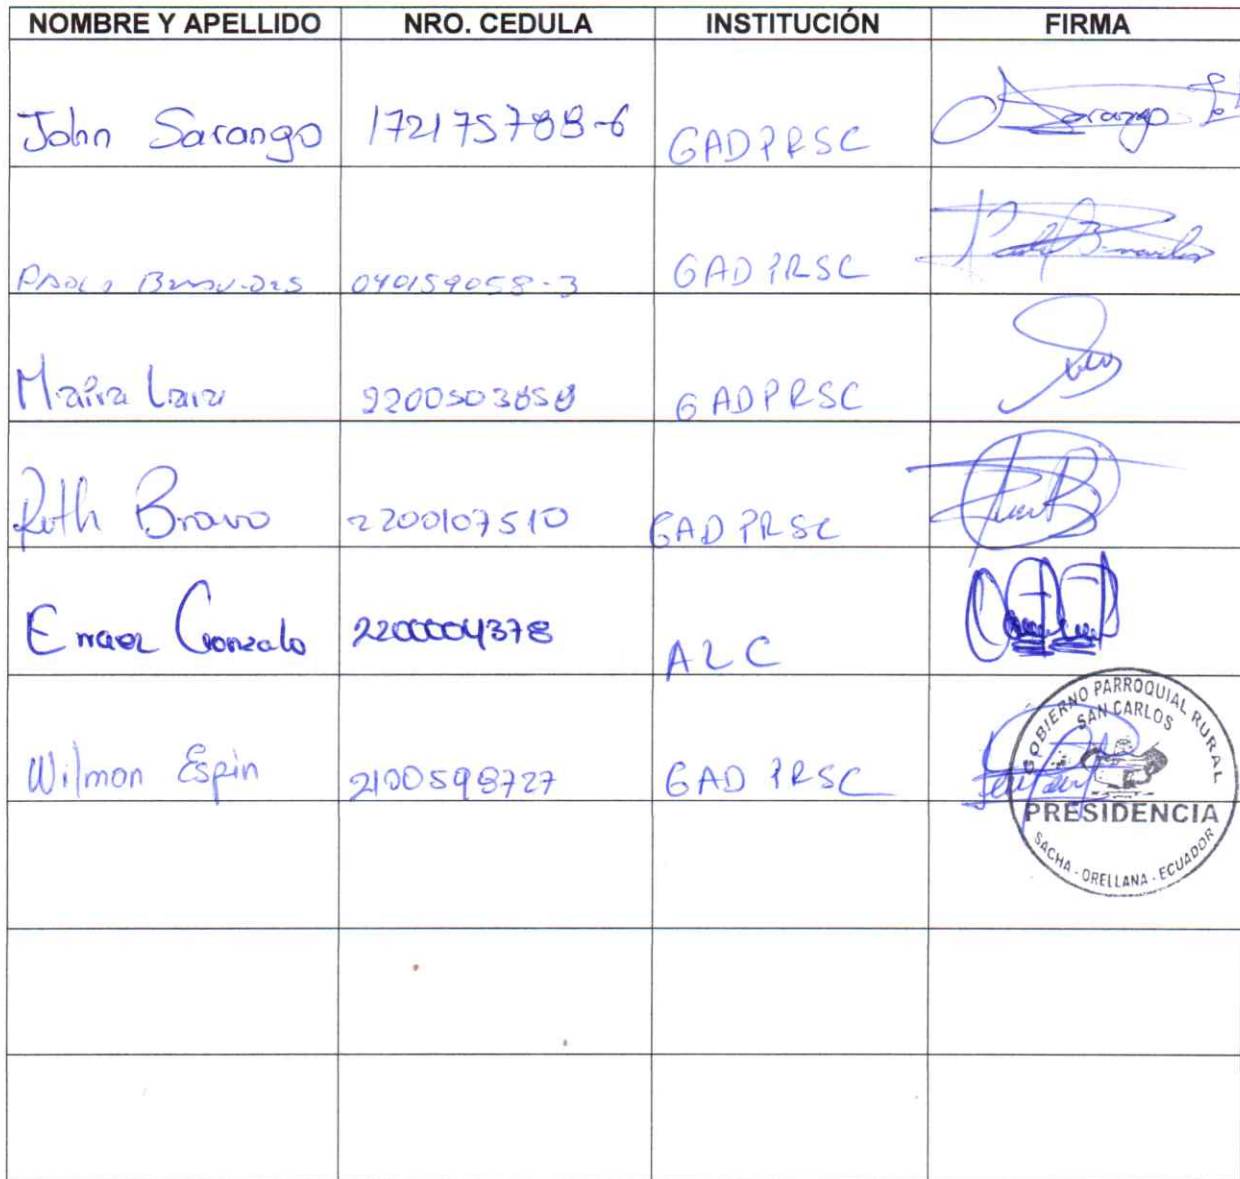 NOMBRE Y APELLIDO NRO. CEDULA INSTITUCIÓN FIRMA
John Sarango 172175788-6 GADPRSC Sarango
040159058-3 GADPRSC
Maira Lara 2200503858 GADPRSC
Ruth Bravo 2200107510 GADPRSC
Gonzalo 2200004378 ALC
Wilmon Espin 2100598727 GADPRSC
GOBIERNO PARROQUIAL RURAL
SAN CARLOS
PRESIDENCIA
SACHA - ORELLANA - ECUADOR